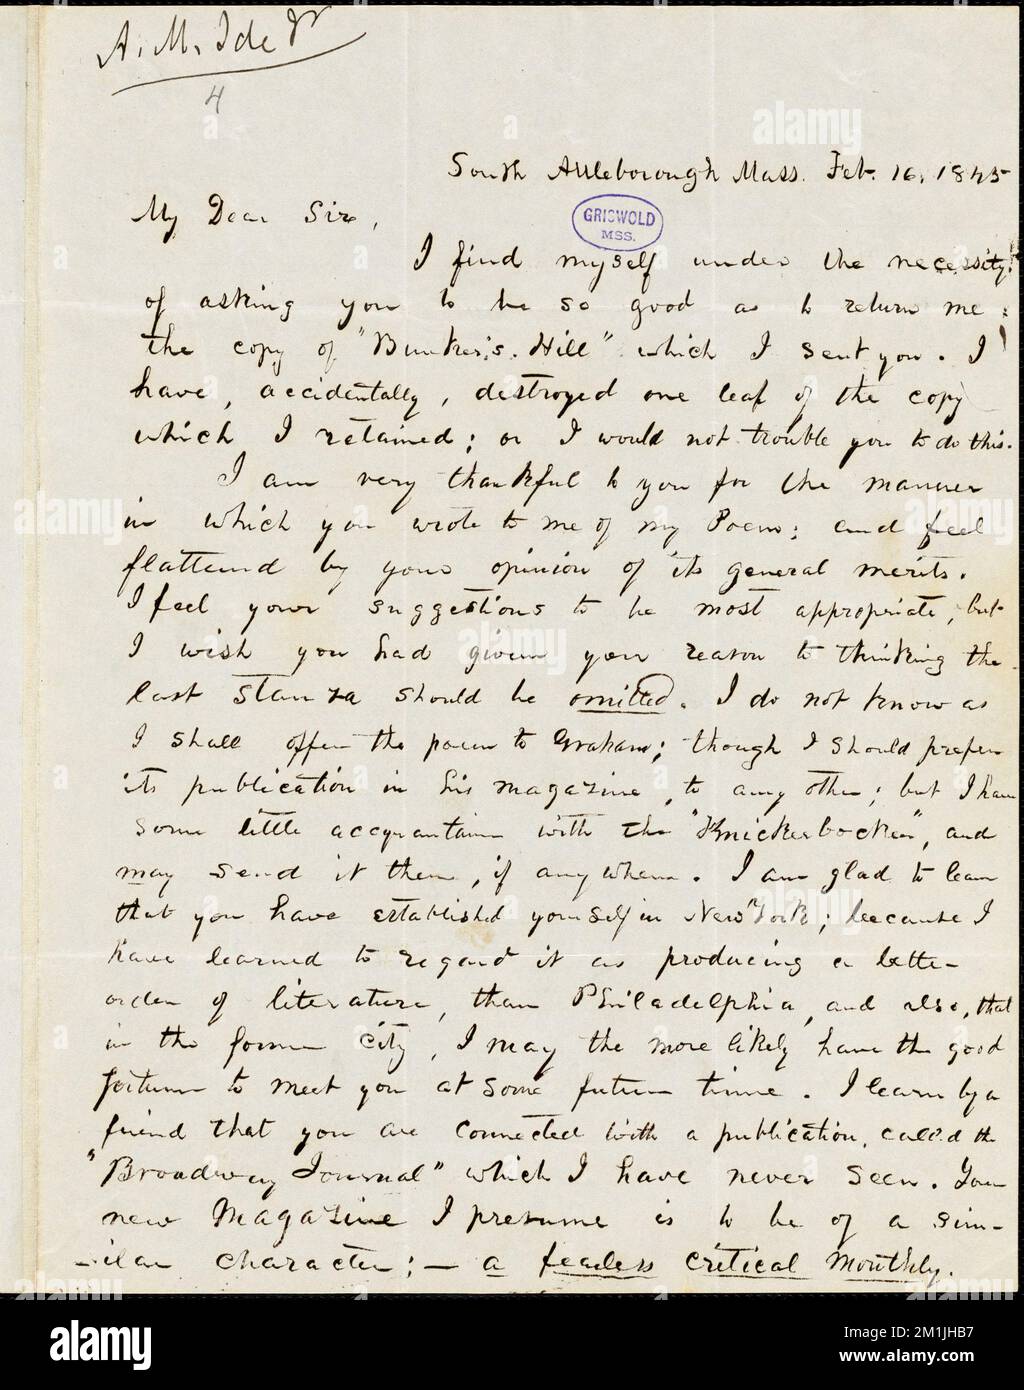 A. M. Ide Jr
4
South Attleborough Mass. Feb. 16, 1845
My Dear Sir,
GRISWOLD
MSS.
I find myself under the necessity
of asking you to be so good as to return me
the copy of "Bunker's Hill" which I sent you. I
have, accidentally, destroyed one leaf of the copy
which I retained; or I would not trouble you to do this.
I am very thankful to you for the manner
in which you wrote to me of my Poem; and feel
flattered by your opinion of its general merits.
I feel your suggestions to be most appropriate, but
I wish you had given your reason to thinking the
last stanza should be omitted. I do not know as
I shall offer the poem to Graham; though I should prefer
its publication in his magazine, to any other; but I have
some little acquaintance with the "Knickerbocker", and
may send it them, if anywhere. I am glad to learn
that you have established yourself in New York; because I
have learned to regard it as producing a better
order of literature, than Philadelphia, and also, that
in the former city, I may the more likely have the good
fortune to meet you at some future time. I learn by a
friend that you are connected with a publication, called the
"Broadway Journal" which I have never seen. Your
new Magazine I presume is to be of a sim-
-ilar character; — a fearless critical monthly.
alamy
Image ID: 2M1JHB7
www.alamy.com